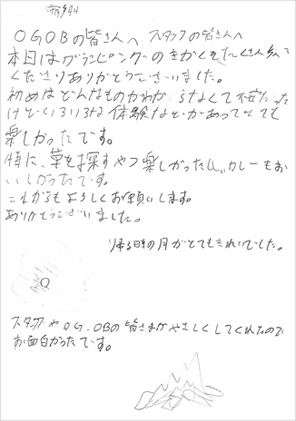 OGOBの皆さんへ スタッフの皆さんへ
本日はグランピングーのきかくをたくさん考えて
くださりありがとうございました。
初めはどんなものかわからなくて不安だった
けどいろいろな体験などがあってとても
楽しかったです。
特に、葉を探すやつ楽しかったし。カレーもお
いしかったです。
これからもよろしくお願いします。
ありがとうございました。
帰る時の月がとてもきれいでした。
スタッフやOG.OBの皆さまがやさしくしてくれたので
お面白かったです。